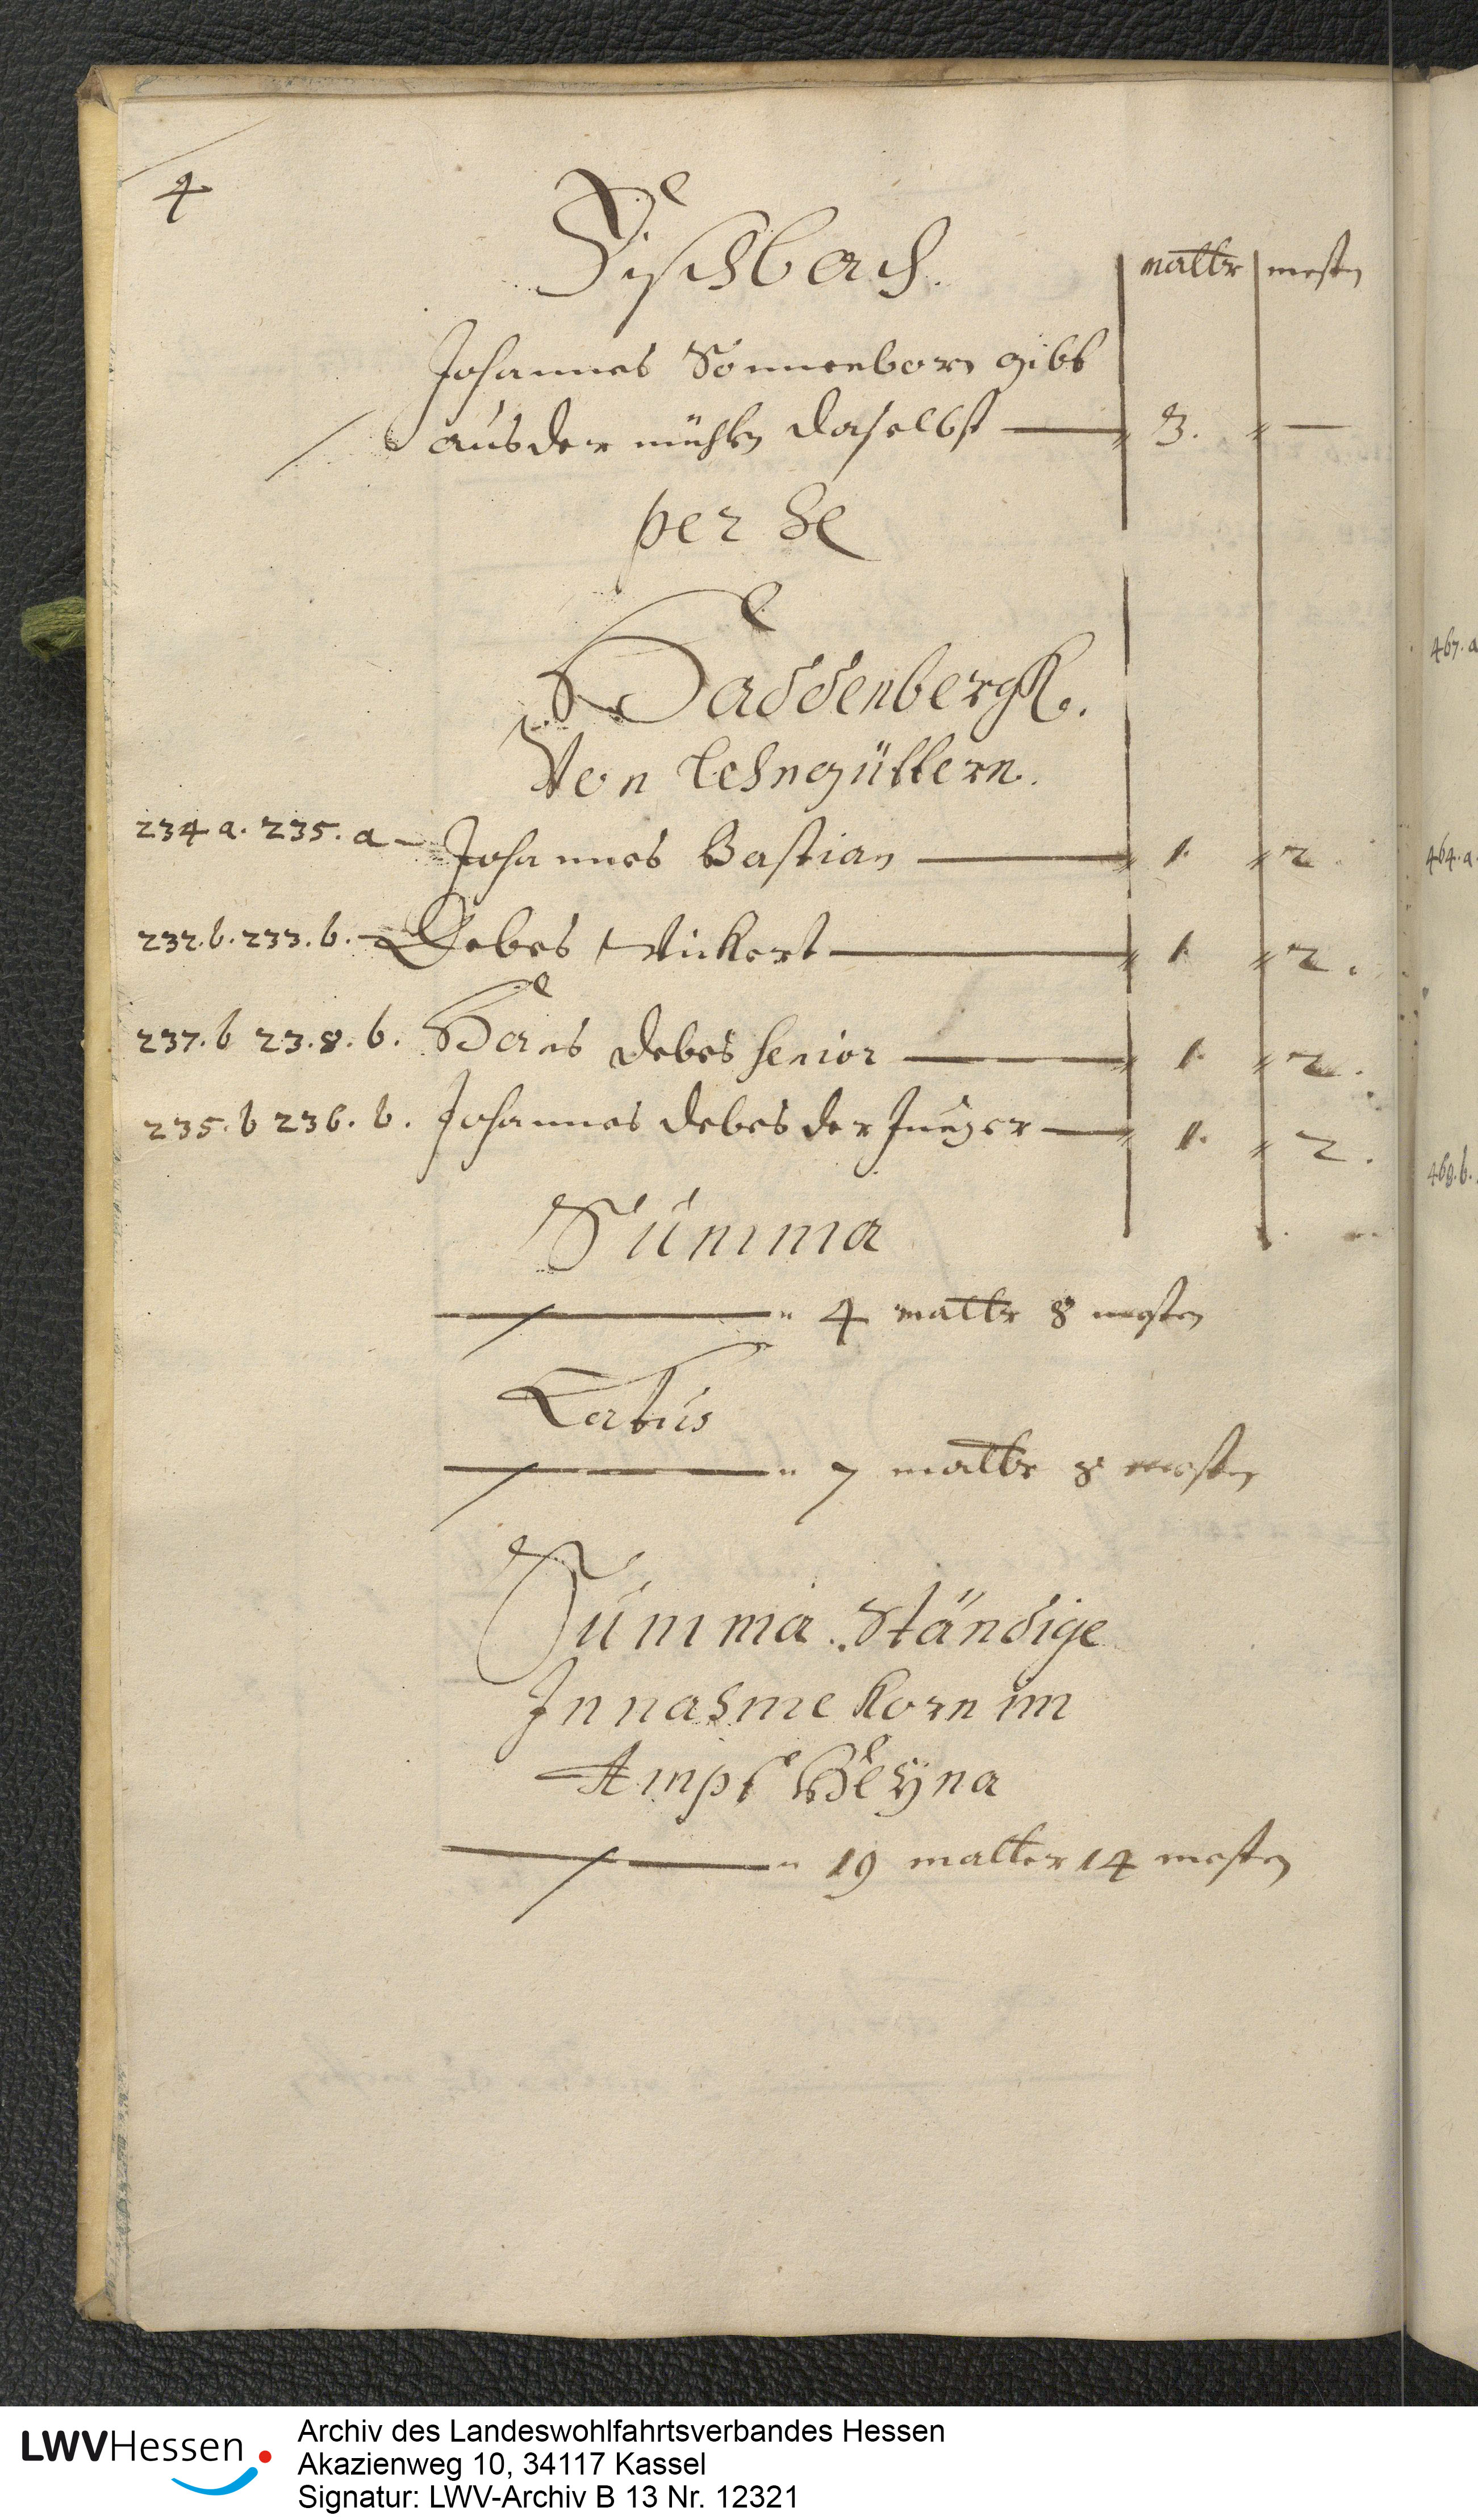 4
Fischbach.
maltr mesten
Johannes Sonneborn gibt
aus der mühlen daselbst — 3. —
per se
Haddenbergk.
Von Lehngüttern.
234 a. 235. a — Johannes Bastian — 1. 2.
232. b. 233. b. — Debes Wickert — 1. 2.
237. b 23.8. b. Hans Debes senior — 1. 2.
235. b 236. b. Johannes Debes der Junger — 1. 2.
Summa
— 4 maltr 8 mesten
Latus
— 7 maltr 8 mesten
Summa Ständige
Innahme Korn im
Ampt Heyna
— 19 malter 14 mesten
467. a
464. a.
469. b.
LWVHessen
Archiv des Landeswohlfahrtsverbandes Hessen
Akazienweg 10, 34117 Kassel
Signatur: LWV-Archiv B 13 Nr. 12321